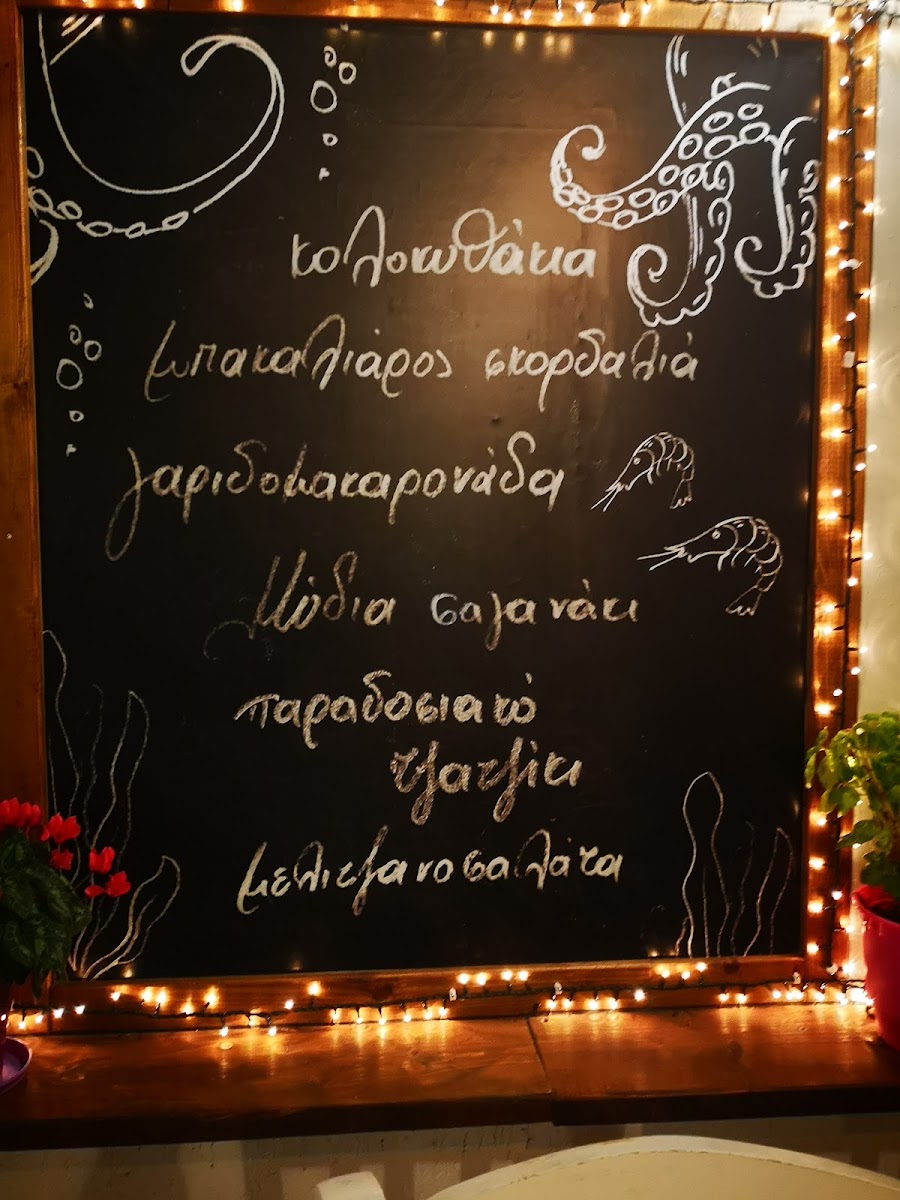 κολοκυθάκια
μπακαλιάρος σκορδαλιά
γαριδομακαρονάδα
Μύδια σαγανάκι
παραδοσιακό
τζατζίκι
μελιτζανοσαλάτα